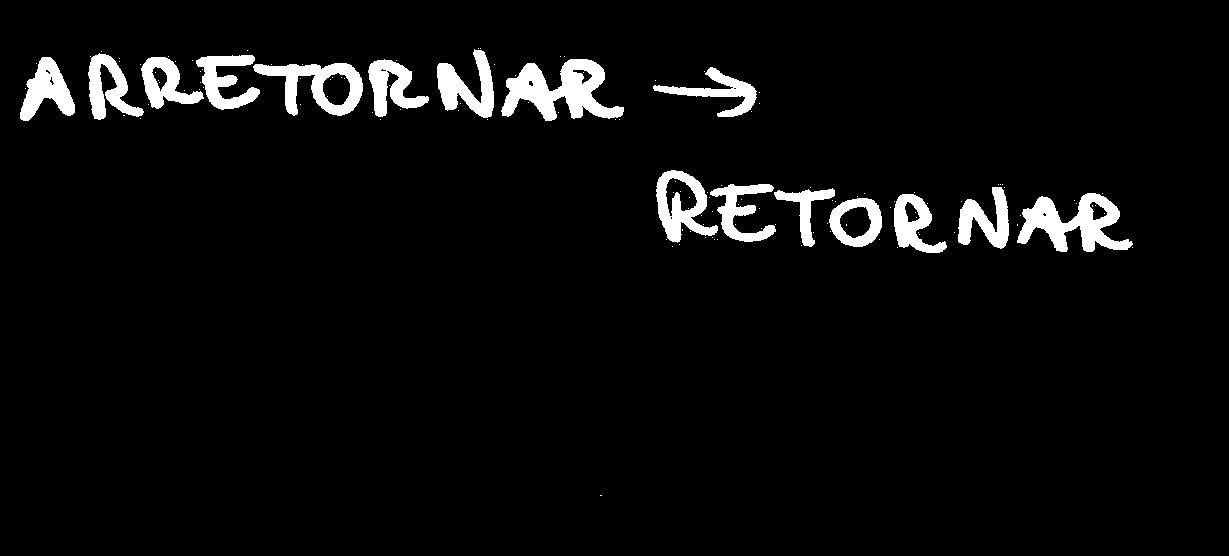 ARRETORNAR →
RETORNAR